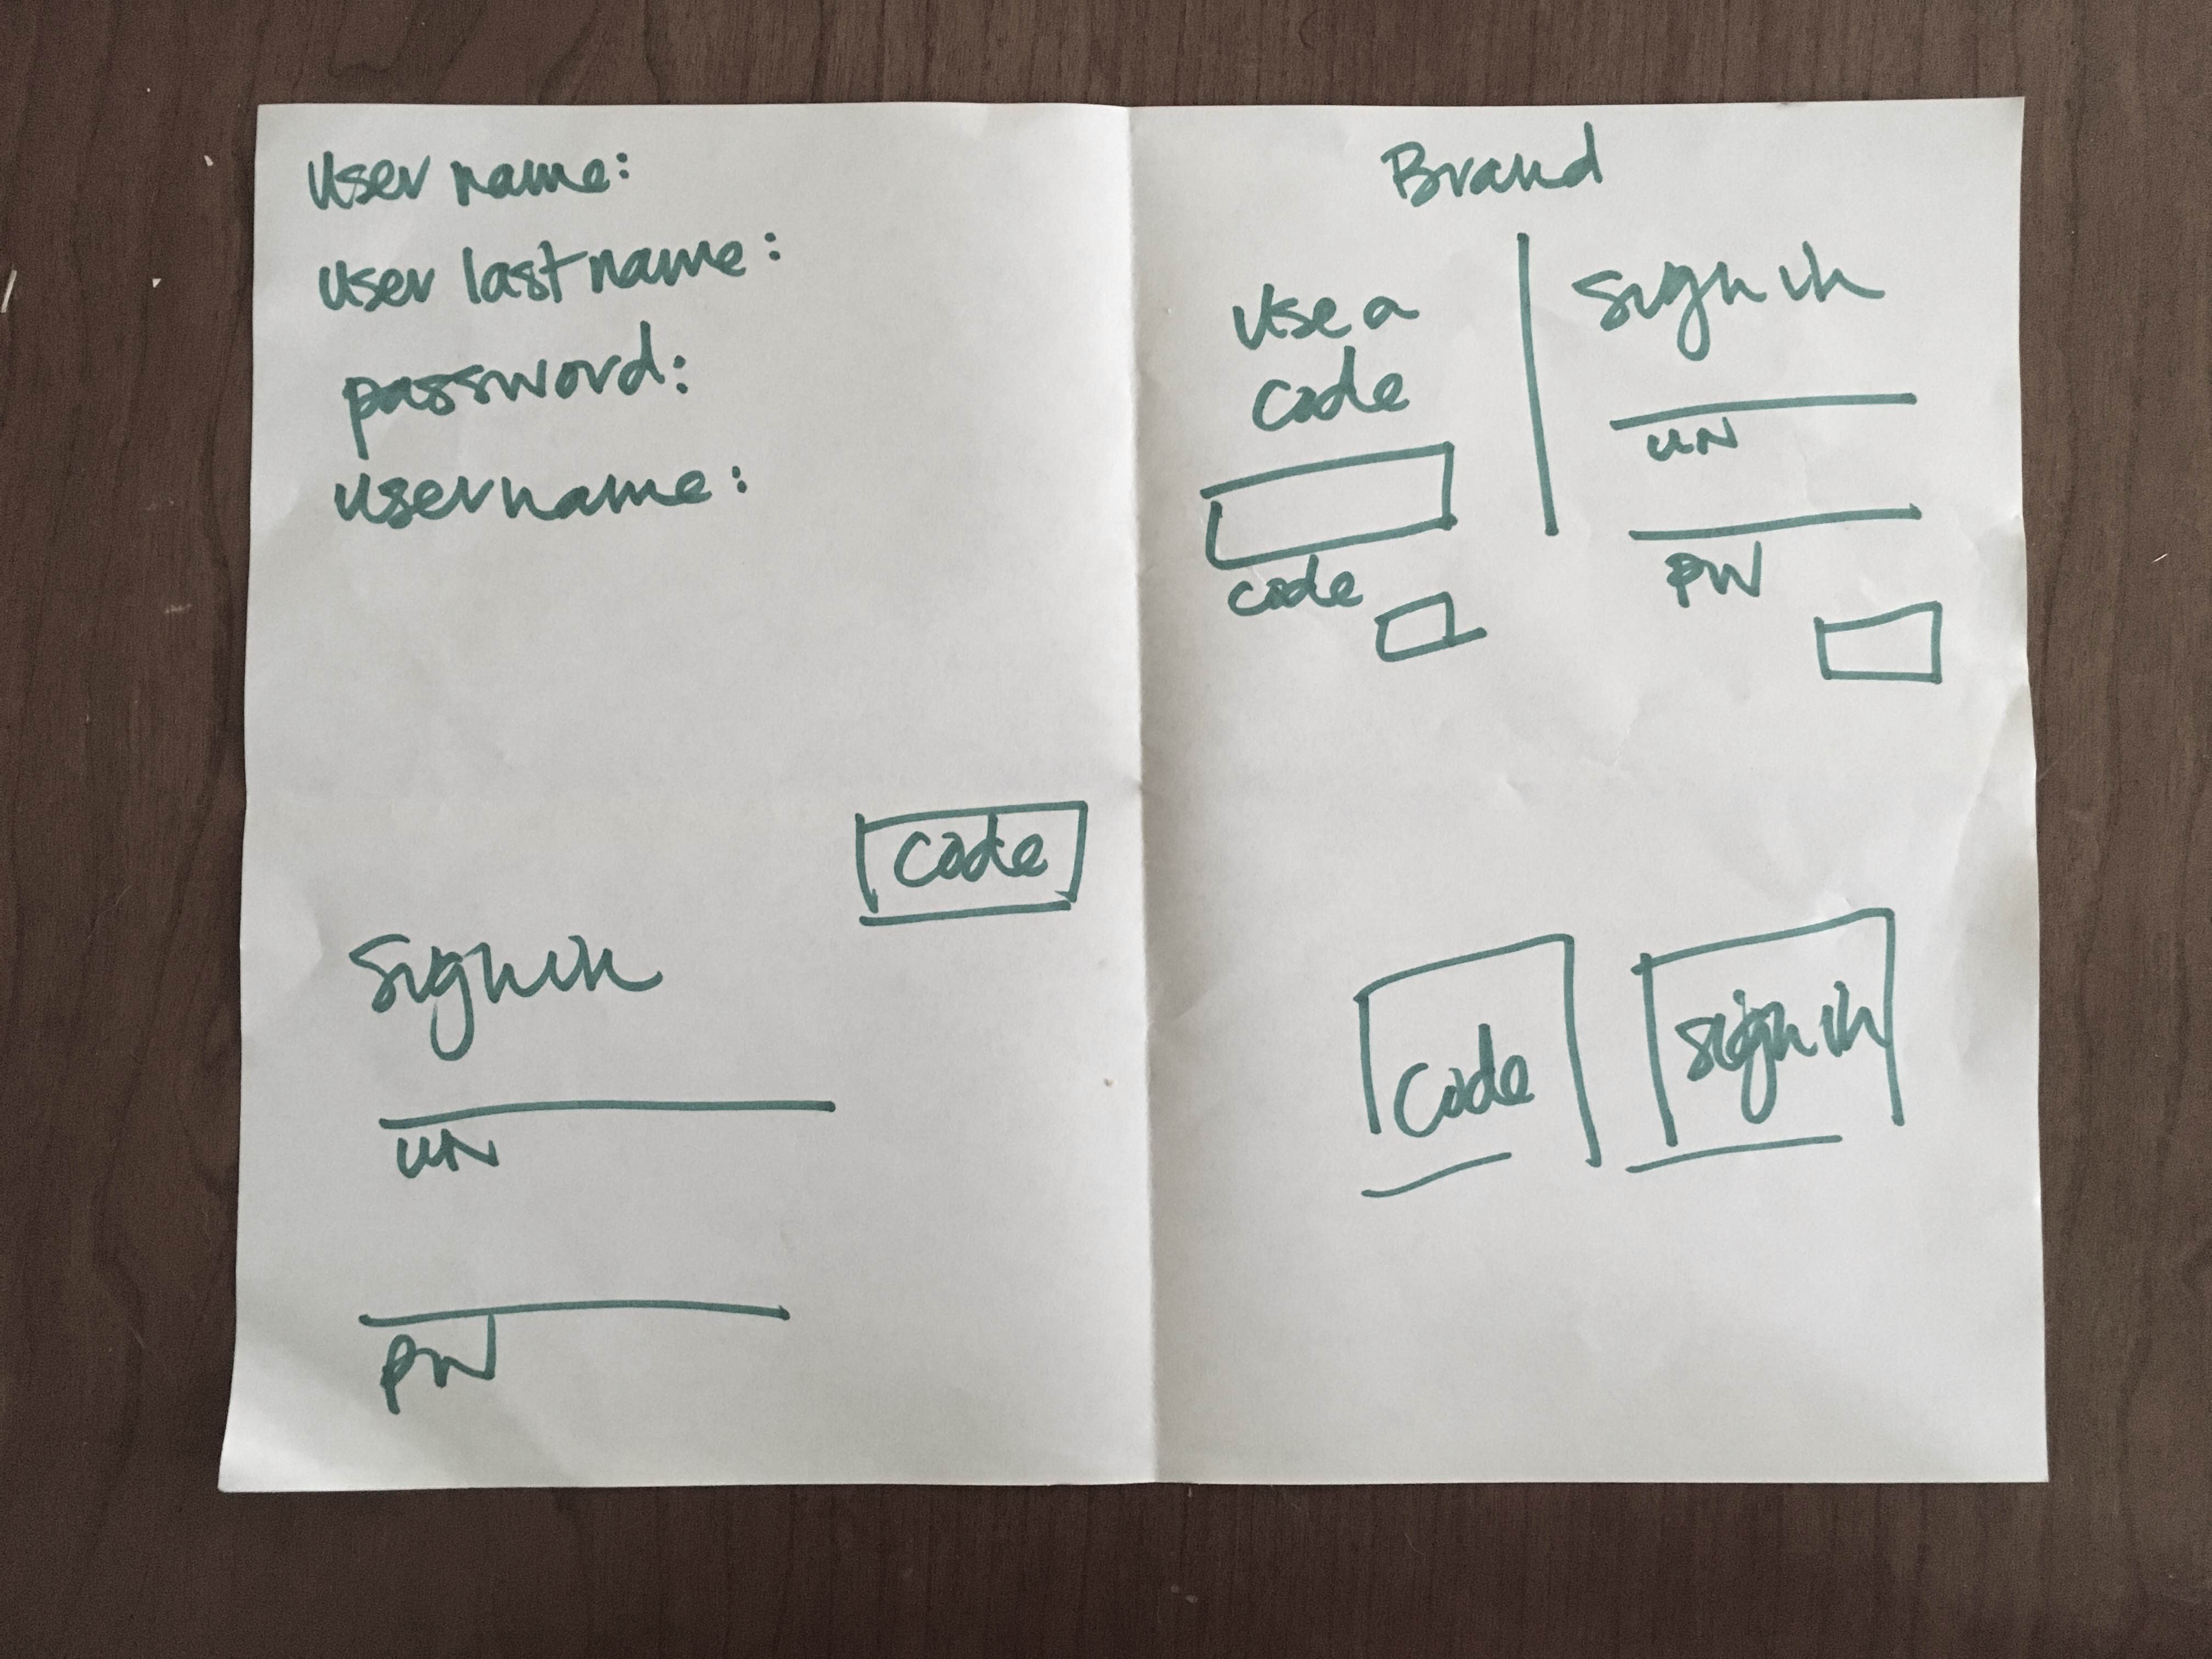 user name:
user last name:
password:
username:
code
Sign in
UN
PW
Brand
use a
code
code
Sign in
UN
PW
code
sign in